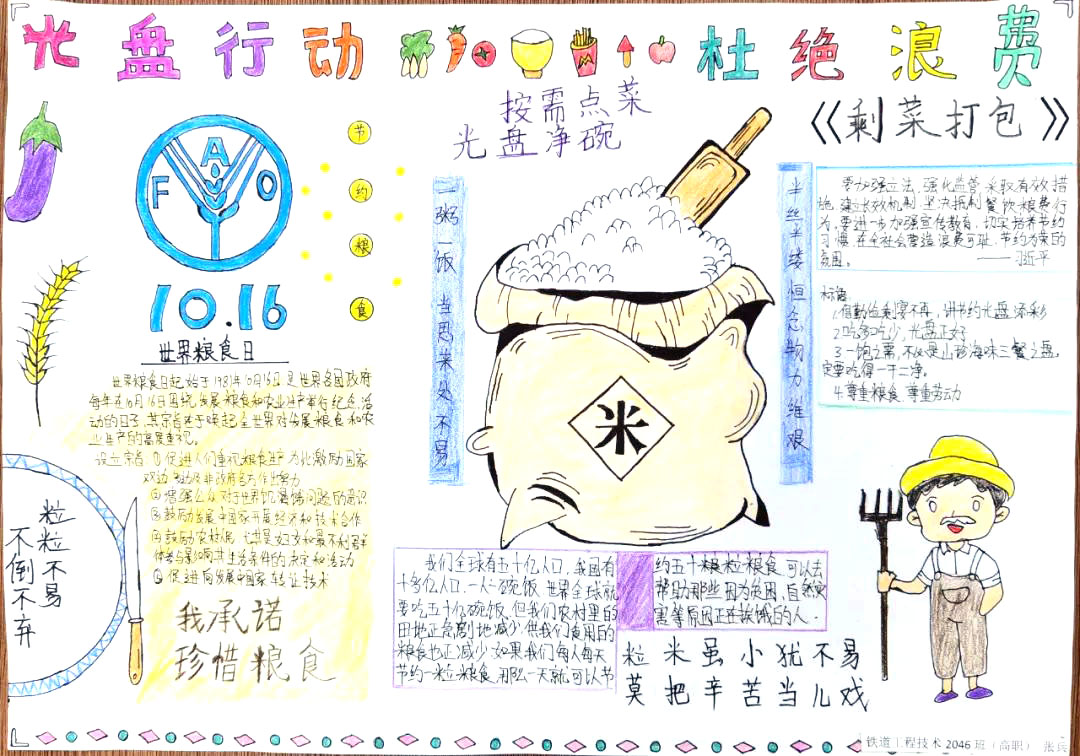 光盘行动 杜绝浪费
按需点菜
光盘净碗
《剩菜打包》
FAO
10.16
世界粮食日
节
约
粮
食
世界粮食日起始于1981年10月16日是世界各国政府
每年在10月16日围绕发展粮食和农业生产举行纪念活
动的日子,其宗旨在于唤起全世界对发展粮食和农
业生产的高度重视。
设立宗旨:①促进人们重视粮食生产为此激励国家
双边多边及非政府各方作出努力
③鼓励发展中国家开展经济和技术合作
促进向发展中国家转让技术
我承诺
珍惜粮食
粒粒不易
不倒不弃
一粥一饭 当思来处不易
米
半丝半缕 恒念物力维艰
要加强立法,强化监管,采取有效措
施,建立长效机制,坚决抵制餐饮浪费行
为,要进一步加强宣传教育,切实培养节约
习惯,在全社会营造浪费可耻、节约为荣的
氛围。 ——习近平
2.吃多吃少,光盘正好
3.一饱之需,不必是山珍海味三餐之盘,
定要吃得一干二净。
4.尊重粮食,尊重劳动
我们全球有五十亿人口,我国有
十多亿人口,一人一碗饭,世界全球就
要吃五十亿碗饭,但我们农村里的
田地正急剧地减少,供我们食用的
粮食也正减少,如果我们每人每天
节约一粒粮食,那么一天就可以节
约五十粮粒粮食,可以去
帮助那些因为贫困,自然灾
害等原因正在挨饿的人.
粒米虽小犹不易
莫把辛苦当儿戏
铁道工程技术2046班(高职)